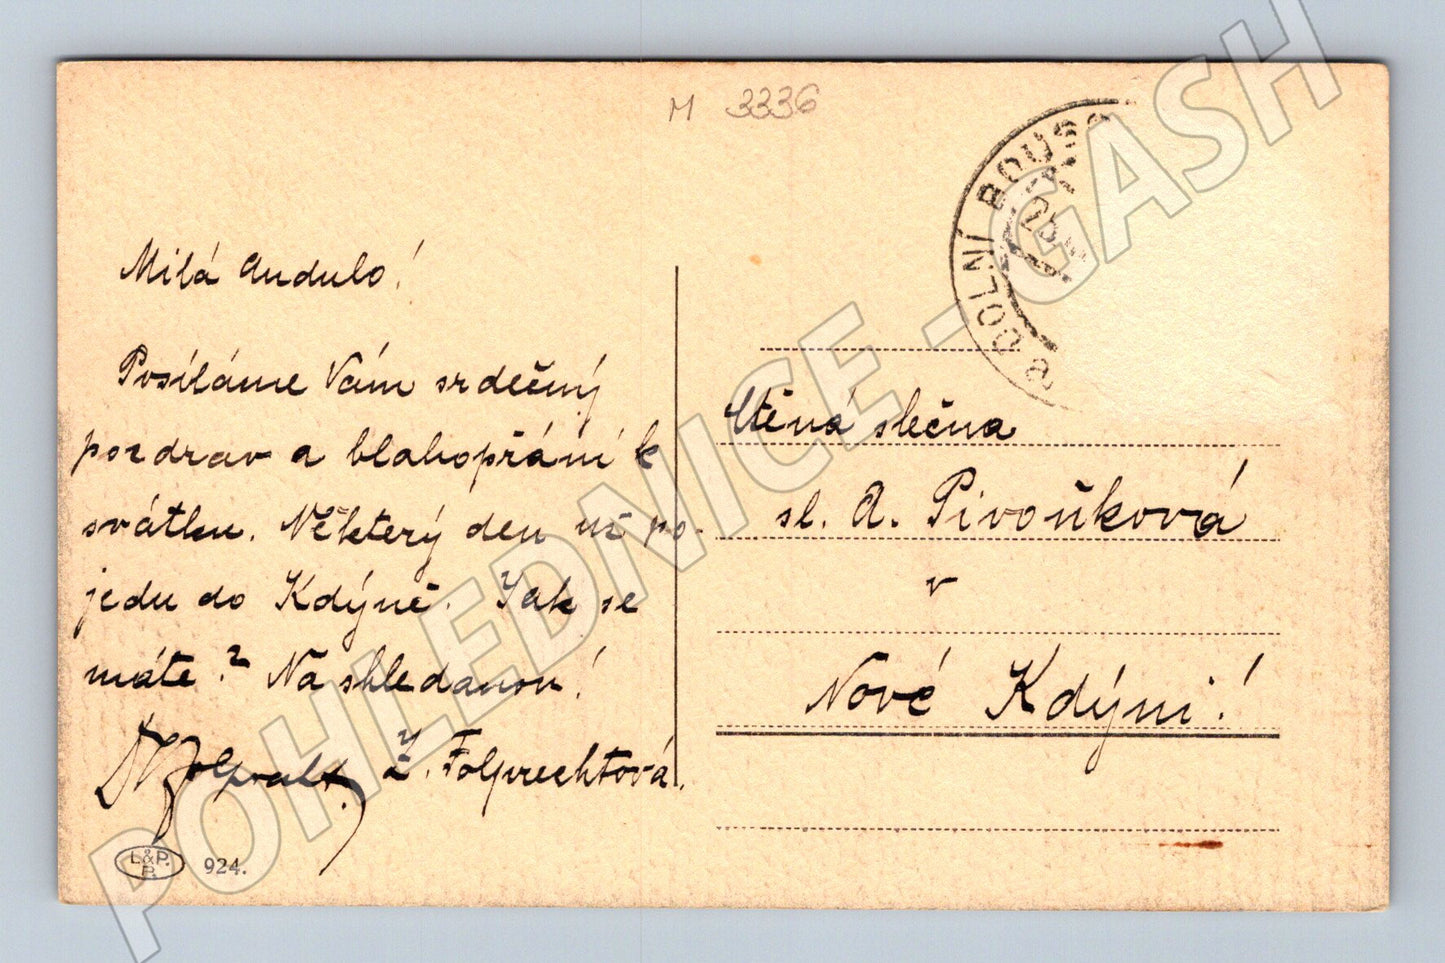 M 3336
DOLNÍ BOUS
a
Milá Andulo!
Posíláme Vám srdečný
pozdrav a blahopřání k
svátku. Některý den už po-
jedu do Kdýně. Jak se
máte? Na shledanou!
Folprecht. Z. Folprechtová.
L&P.
P.
924.
Ctěná slečna
sl. A. Pivoňková
v
Nové Kdýni!
POHLEDNICE - GASH